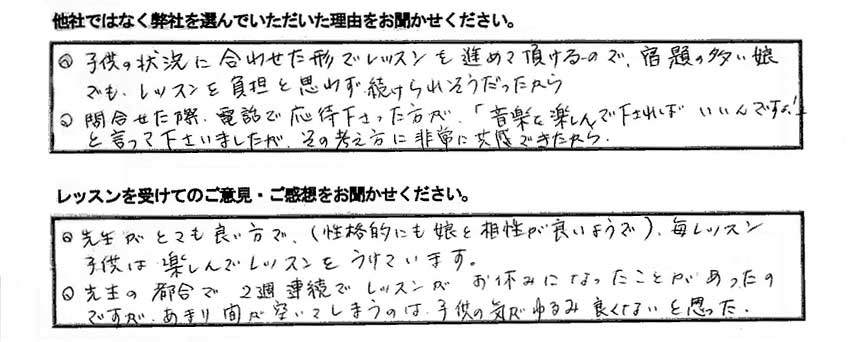 他社ではなく弊社を選んでいただいた理由をお聞かせください。
◎ 子供の状況に合わせた形でレッスンを進めて頂けるので、宿題の多い娘
でも、レッスンを負担と思わず続けられそうだったから
◎ 問合せた際、電話で応待下さった方が、「音楽を楽しんで下されば いいんですよ!」
と言って下さいましたが、その考え方に非常に共感できたから。
レッスンを受けてのご意見・ご感想をお聞かせください。
◎ 先生がとても良い方で、(性格的にも娘と相性が良いようで)、毎レッスン
子供は楽しんでレッスンをうけています。
◎ 先生の都合で 2週連続でレッスンが お休みになったことがあったの
ですが、あまり間が空いてしまうのは、子供の気がゆるみ良くないと思った。